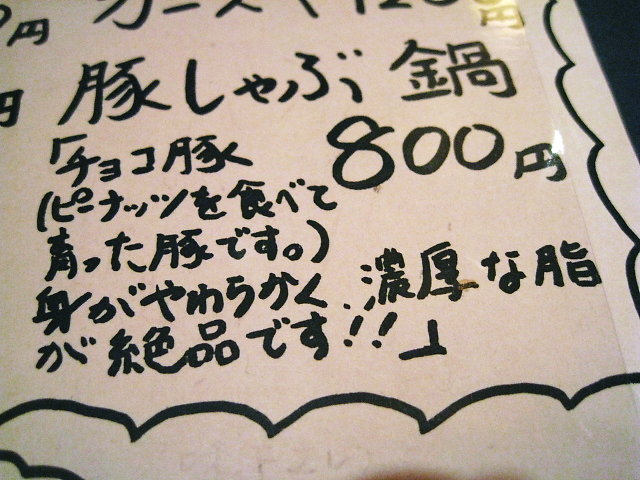 円
円
豚しゃぶ鍋
800円
「チョコ豚
(ピーナッツを食べて
育った豚です。)
身がやわらかく、濃厚な脂
が絶品です!!」